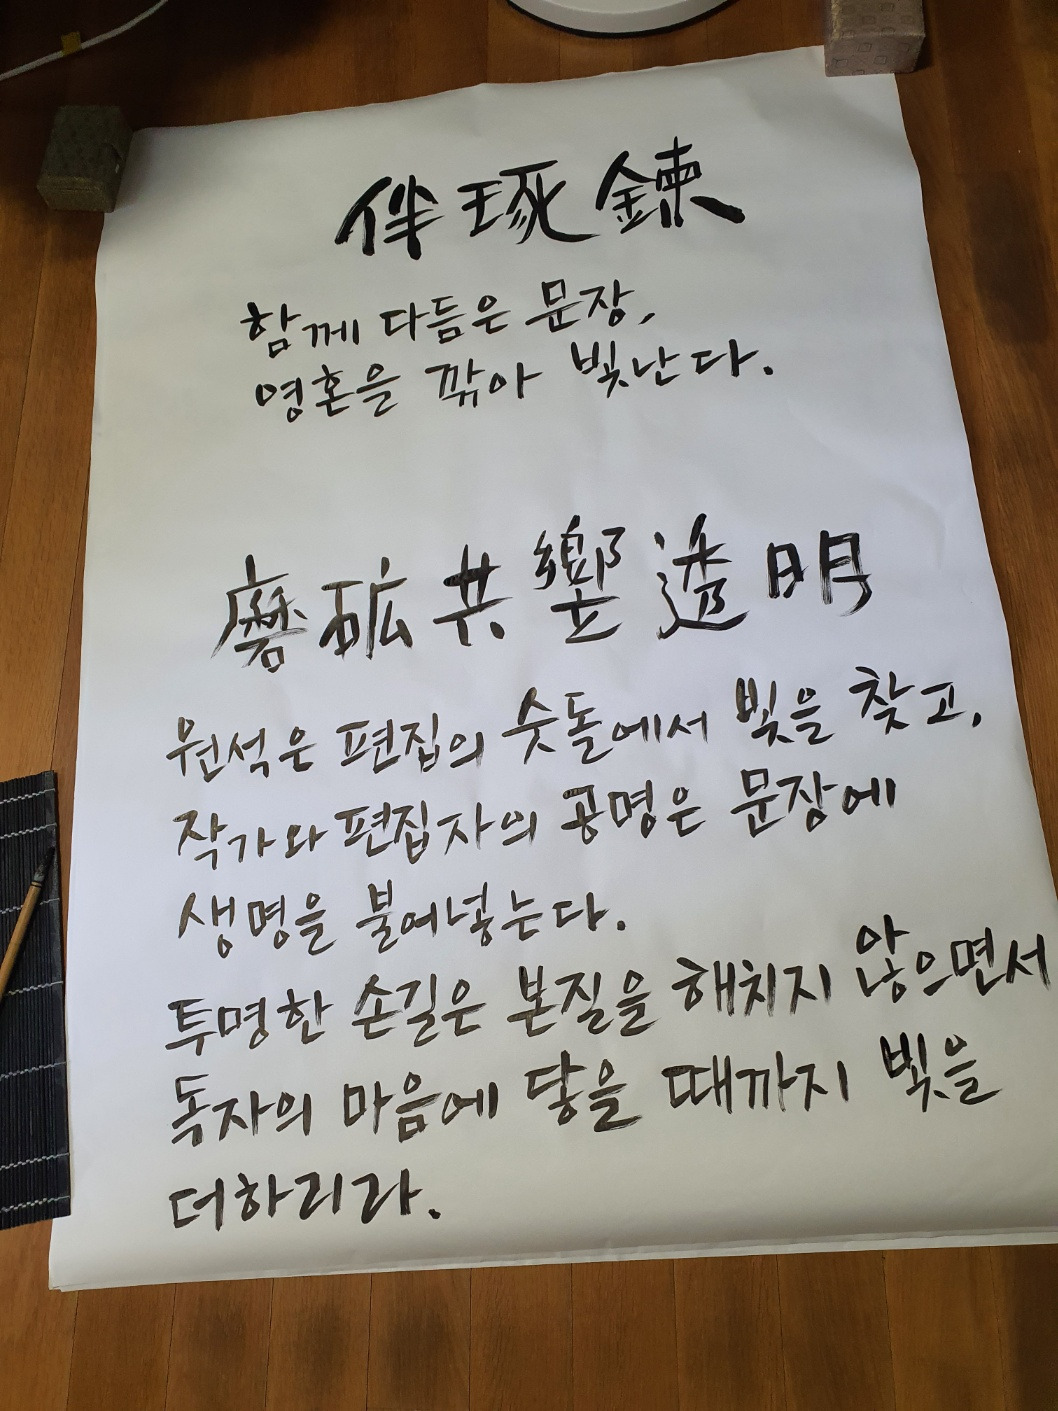 伴琢鍊
함께 다듬은 문장,
영혼을 깎아 빛난다.
磨砿共響透明
원석은 편집의 숫돌에서 빛을 찾고,
작가와 편집자의 공명은 문장에
생명을 불어넣는다.
투명한 손길은 본질을 해치지 않으면서
독자의 마음에 닿을 때까지 빛을
더하리라.